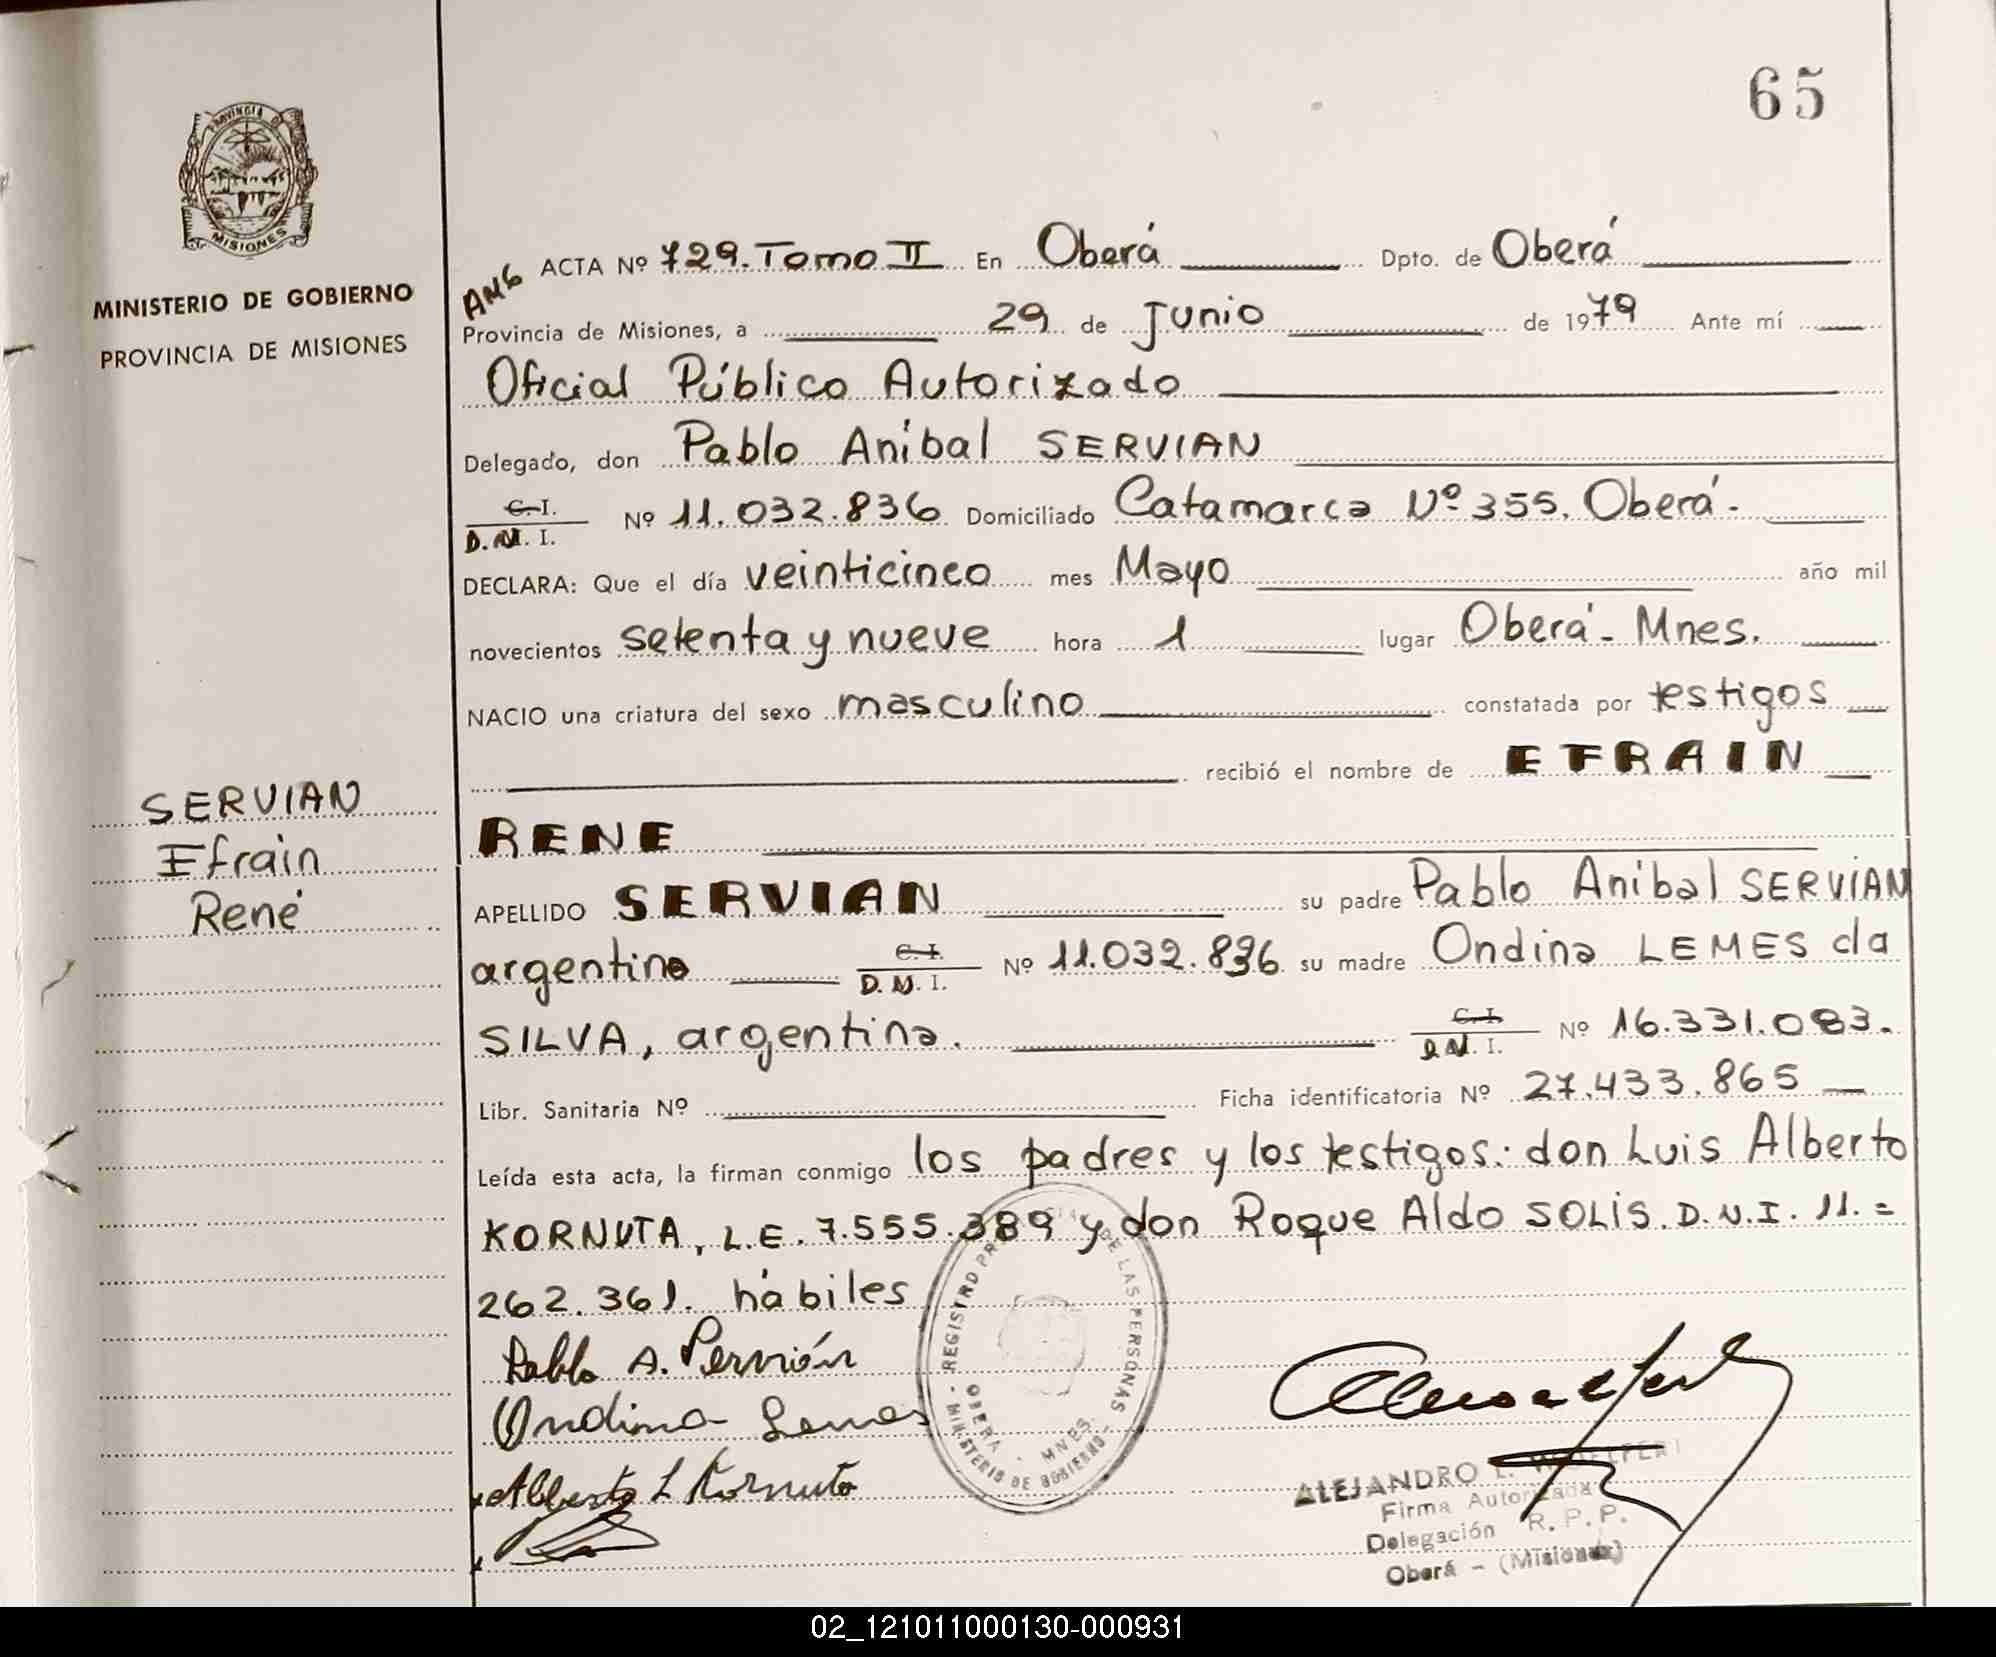 65
PROVINCIA DE
MISIONES
MINISTERIO DE GOBIERNO
PROVINCIA DE MISIONES
ANG ACTA Nº 729. Tomo II En Oberá Dpto. de Oberá
Provincia de Misiones, a 29 de Junio de 1979 Ante mí
Oficial Público Autorizado
Delegado, don Pablo Anibal SERVIAN
C.I.
D.N.I. Nº 11.032.836 Domiciliado Catamarca Nº 355. Oberá.
DECLARA: Que el día veinticinco mes Mayo año mil
novecientos setenta y nueve hora 1 lugar Oberá - Mnes.
NACIO una criatura del sexo masculino constatada por testigos
recibió el nombre de EFRAIN
RENE
SERVIAN
Efrain
René
APELLIDO SERVIAN su padre Pablo Anibal SERVIAN
argentino C.I. D.N.I. Nº 11.032.836 su madre Ondina LEMES da
SILVA, argentina. C.I. D.N.I. Nº 16.331.083.
Libr. Sanitaria Nº Ficha identificatoria Nº 27.433.865
Leída esta acta, la firman conmigo los padres y los testigos: don Luis Alberto
KORNUTA, L.E. 7.555.389 y don Roque Aldo SOLIS. D.N.I. 11.=
262.361. hábiles
Pablo A. Servián
Ondina Lemes
Alberto L Kornuta
REGISTRO PROVINCIAL DE LAS PERSONAS
OBERA - MNES.
MINISTERIO DE GOBIERNO
ALEJANDRO L.
Firma Autorizada
Delegación R.P.P.
Oberá - (Misiones)
02_121011000130-000931